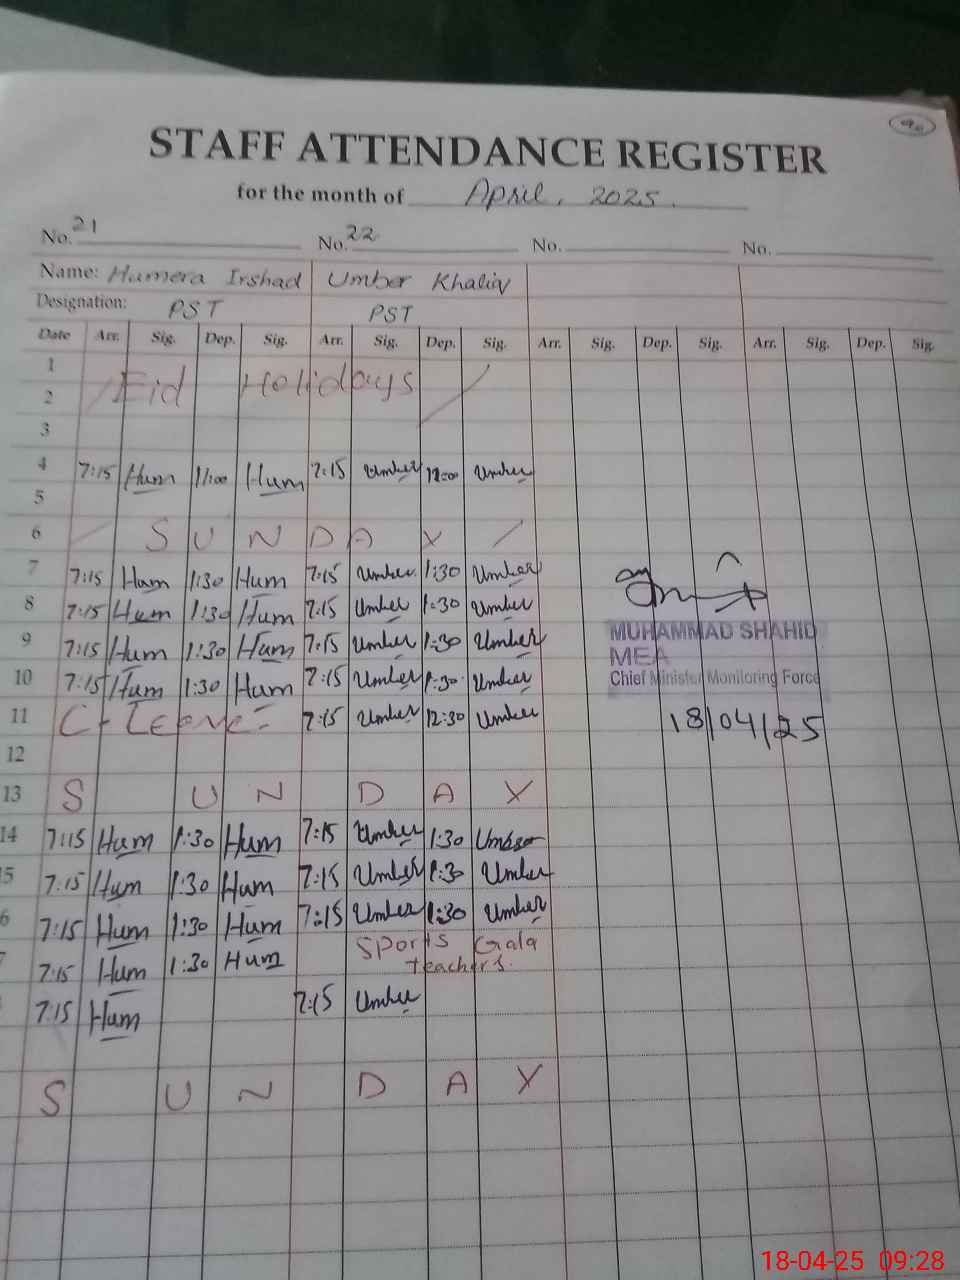 90
STAFF ATTENDANCE REGISTER
for the month of April, 2025.
No. 21 No. 22 No. No.
Name: Humera Irshad Umber Khaliq
Designation: PST PST
Date Arr. Sig. Dep. Sig. Arr. Sig. Dep. Sig. Arr. Sig. Dep. Sig. Arr. Sig. Dep. Sig.
1
2 Eid Holidays
3
4 7:15 Hum 11:00 Hum 7:15 Umber 12:00 Umber
5
6 SUNDAY
7 7:15 Hum 1:30 Hum 7:15 Umber 1:30 Umber
8 7:15 Hum 1:30 Hum 7:15 Umber 1:30 Umber
9 7:15 Hum 1:30 Hum 7:15 Umber 1:30 Umber
10 7:15 Hum 1:30 Hum 7:15 Umber 1:30 Umber
11 C-Leave 7:15 Umber 12:30 Umber
12
13 SUNDAY
14 7:15 Hum 1:30 Hum 7:15 Umber 1:30 Umber
5 7:15 Hum 1:30 Hum 7:15 Umber 1:30 Umber
6 7:15 Hum 1:30 Hum 7:15 Umber 1:30 Umber
7:15 Hum 1:30 Hum Sports Gala
teachers.
7:15 Hum 7:15 Umber
SUNDAY
MUHAMMAD SHAHID
MEA
Chief Minister Monitoring Force
18/04/25
18-04-25 09:28